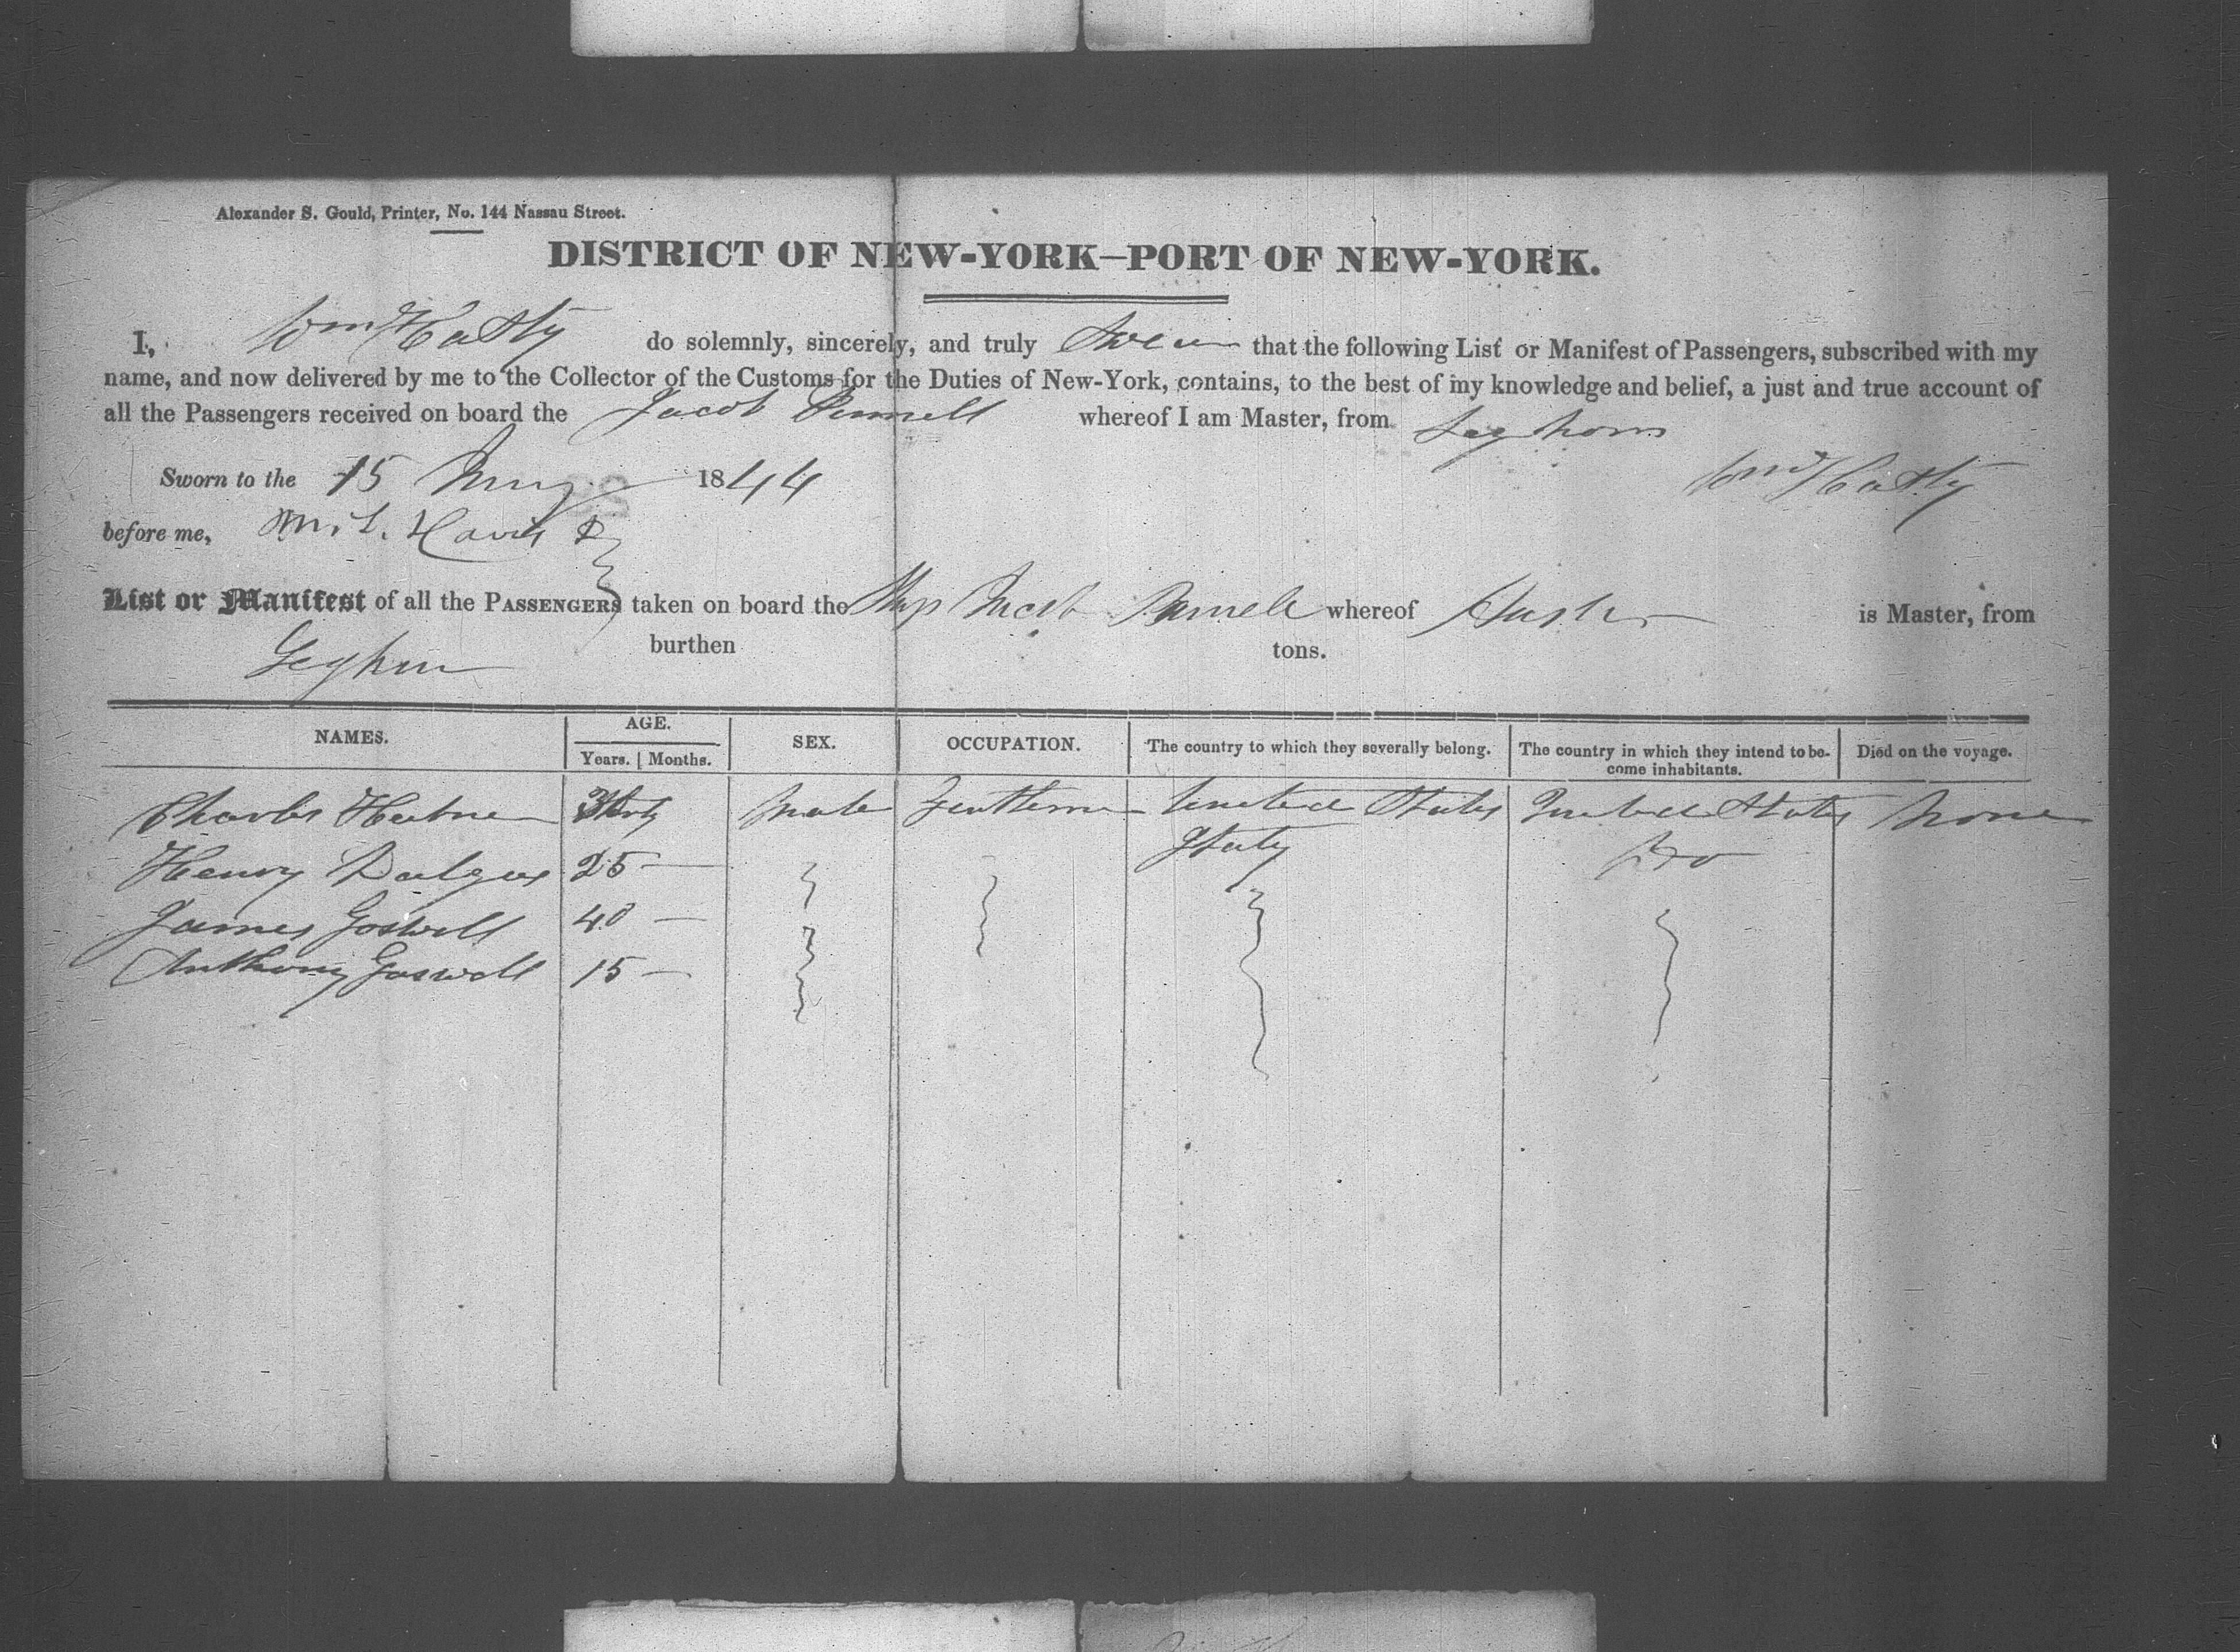 Alexander S. Gould, Printer, No. 144 Nassau Street.
DISTRICT OF NEW-YORK—PORT OF NEW-YORK.
I, Wm do solemnly, sincerely, and truly that the following List or Manifest of Passengers, subscribed with my
name, and now delivered by me to the Collector of the Customs for the Duties of New-York, contains, to the best of my knowledge and belief, a just and true account of
all the Passengers received on board the Jacob whereof I am Master, from Leghorn
Sworn to the 15 1844 Wm
before me,
List or Manifest of all the PASSENGERS taken on board the Ship Jacob whereof is Master, from
burthen tons.
NAMES. AGE. SEX. OCCUPATION. The country to which they severally belong. The country in which they intend to become inhabitants. Died on the voyage.
Years. Months.
Charles Male United States United States None
Henry 25 — Italy Do
James Goswell 40 —
Anthony Goswell 15 —